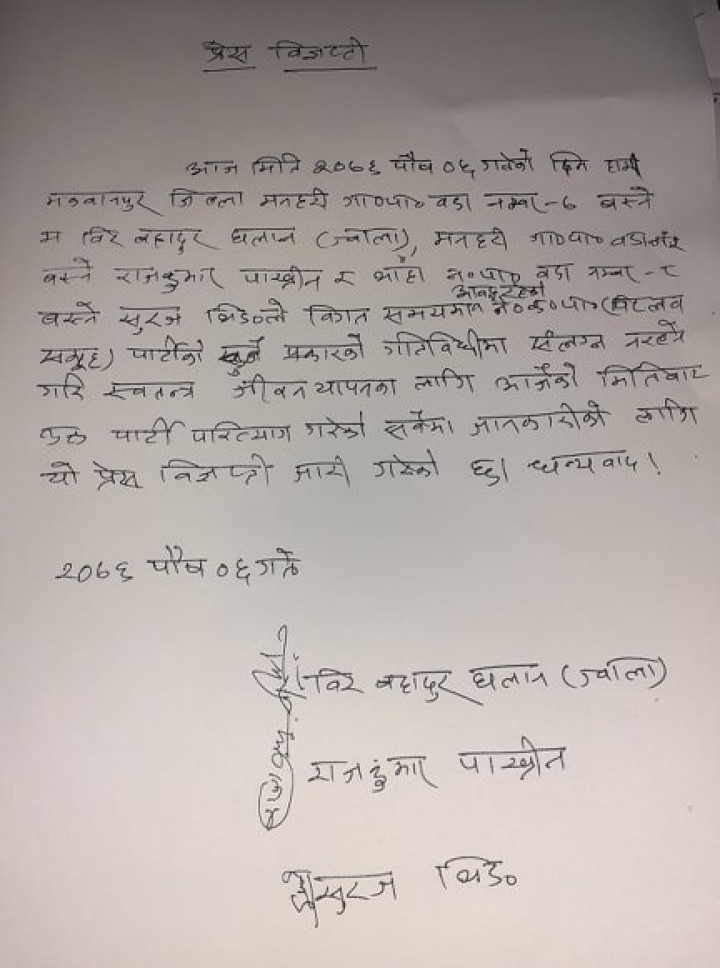 प्रेस विज्ञप्ती
आज मिति २०७६ पौष ०६ गतेको दिन हामी
मकवानपुर जिल्ला मनहरी गा०पा० वडा नम्बर-६ बस्ने
म विर बहादुर घलान (ज्वाला), मनहरी गा०पा० वडा नंर
बस्ने राजकुमार पाख्रीन र थाहा न०पा० वडा नम्बर-८
आवद्ध रहेको
बस्ने सुरज थिङले विगत समयमा ने०क०पा० (विप्लव
समूह) पार्टीको कुनै प्रकारको गतिविधीमा संलग्न नरहने
गरि स्वतन्त्र जीवन यापनका लागि आजैको मितिबाट
उक्त पार्टी परित्याग गरेको सर्वमा जानकारीको लागि
यो प्रेस विज्ञप्ती जारी गरेको छु। धन्यवाद!
२०७६ पौष ०६ गते
विर बहादुर घलान (ज्वाला)
राजकुमार पाख्रीन
सुरज थिङ